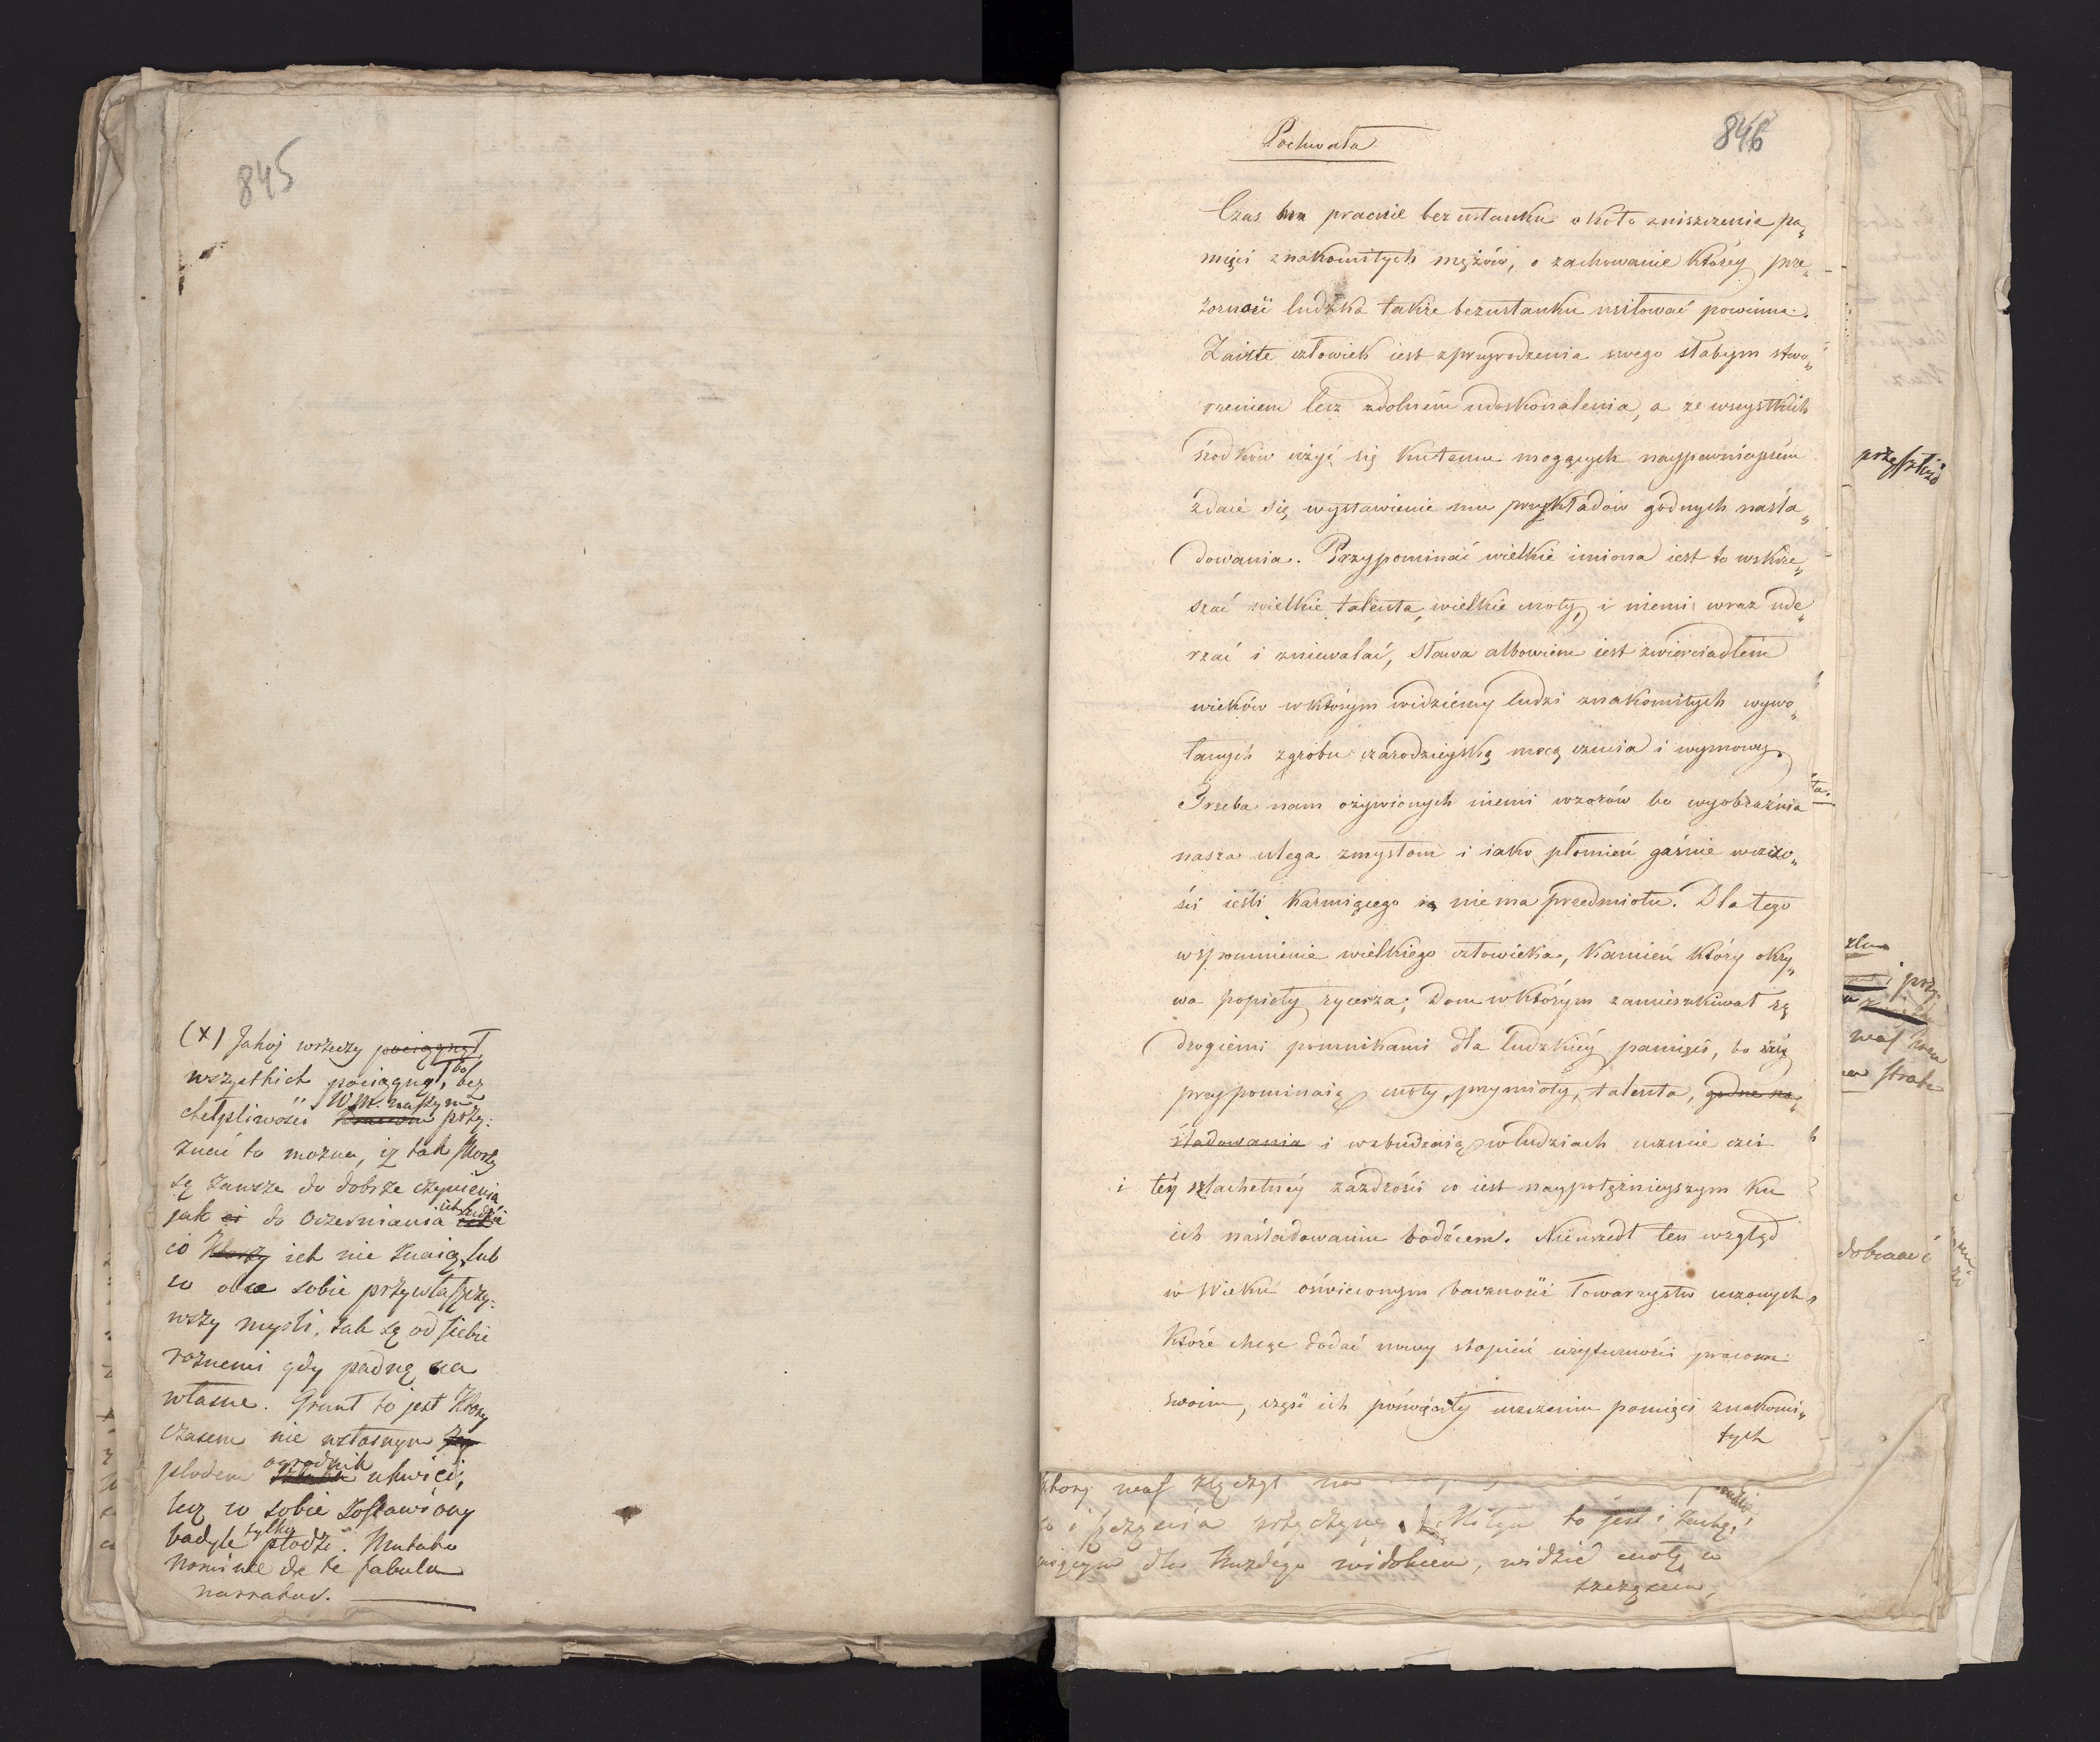 845
(X) Jakoż wrzeczy pociągnął
wszystkich pociągnął, bo bez
chełpliwości W. M. naszym przy:
znać to można, iż tak skorzy
są zawsze do dobrze czynienia
jak ci do oczerniania ludzie
co ich nie znaią, lub
co obce sobie przywłaszczy:
wszy myśli, tak są od siebie
rożnemi gdy padną na
własne. Grunt to jest który
czasem nie własnym
płodem ogrodnik ukwieci,
lecz w sobie zostawiony
badyle tylko płodzi. Mutato
nomine de te fabula
narratur.
846
Pochwała
Czas pracuie bez ustanku około zniszczenia pa„
mięci znakomitych mężów, o zachowanie którey prze„
zorność ludzka także bezustanku usiłować powinna.
Zaiste człowiek iest zprzyrodzenia swego słabym stwo„
rzeniem lecz zdolném udoskonalenia, a ze wszystkich
środków użyć się kutemu mogących naypewnieyszém
zdaie się wystawienie mu przykładów godnych naśla„
dowania. Przypominać wielkie imiona iest to wskrze„
szać wielkie talenta, wielkie cnoty, i niemi wraz ude„
rzać i zniewalać, sława albowiem iest zwierciadłem
wieków wktórym widziémy ludzi znakomitych wywo„
łanych zgrobu czarodzieyską mocą czucia i wymowy.
Trzeba nam ożywionych niemi wzorów bo wyobraźnia
nasza ulega zmysłom i iako płomień gaśnie wczczo„
ści ieśli karmiącego ią niema przedmiotu. Dla tego
wspomnienie wielkiego człowieka, kamień który okry„
wa popioły rycerza; Dom w którym zamieszkiwał są
drogiemi pomnikami dla ludzkiéy pamięci, bo
przypominaią cnoty, przymioty, talenta, godne na„
śladowania i wzbudzaią wludziach uczucie czci
i téy szlachetnéy zazdrości co iest naypotężnieyszym ku
ich naśladowaniu bodźcem. Nieuszedł ten wzgląd
w wieku oświeconym baczności Towarzystw uczonych,
które chcąc dodać nowy stopień użyteczności pracom
swoim, część ich poświęciły uczczeniu pamięci znakomi„
tych
który nas złączył na
i szczęścia przyczynę. Miłym to jest i
dla każdego widokiem, widzieć cnotę w
szczęściu,
dobrać